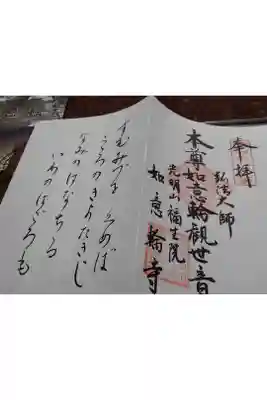 奉拝
弘法大師
本尊如意輪觀世音
光明山福生院
如意輪寺
すむみづを くめば
こころのきよたきじ
なみのはなちる
いわのはごろも